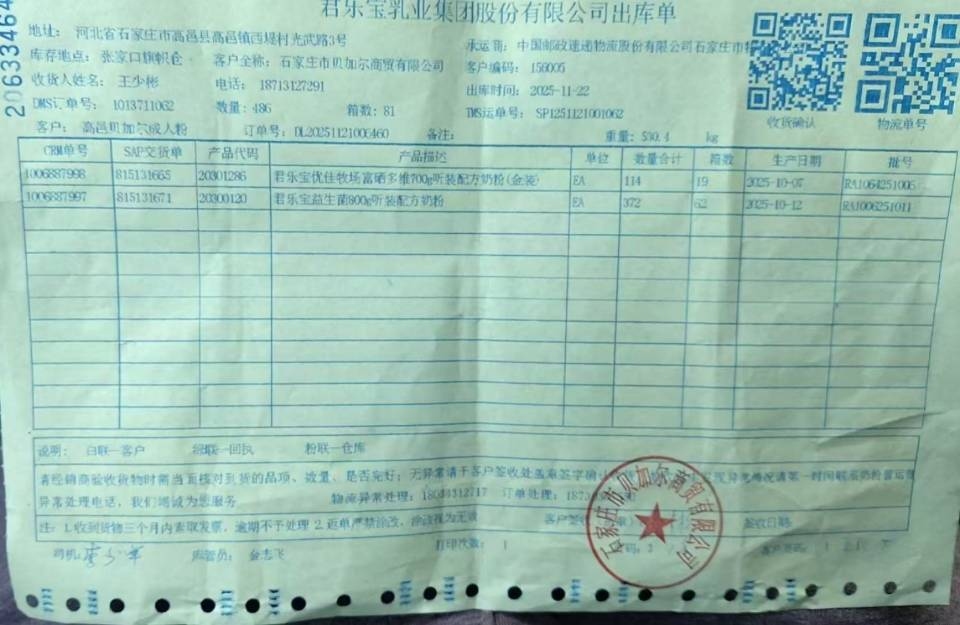 20633464
君乐宝乳业集团股份有限公司出库单
地址： 河北省石家庄市高邑县高邑镇西塔村光武路3号 承运商：中国邮政速递物流股份有限公司石家庄市
库存地点：张家口旗帜仓 客户全称：石家庄市贝加尔商贸有限公司 客户编码：156005
收货人姓名： 王少彬 电话： 18713127291 出库时间：2025-11-22
DMS订单号： 1013711062 数量：486 箱数：81 TMS运单号： SP1251121001062
收货确认 物流单号
客户： 高邑贝加尔成人粉 订单号：DL20251121006460 备注： 重量：530.4 kg
CRM单号 SAP交货单 产品代码 产品描述 单位 数量合计 箱数 生产日期 批号
1006887998 815131665 20301286 君乐宝优佳牧场富硒多维700g听装配方奶粉(金装) EA 114 19 2025-10-07 RA1064251006
1006887997 815131671 20300120 君乐宝益生菌800g听装配方奶粉 EA 372 62 2025-10-12 RA1006251011
说明： 白联—客户 绿联—回执 粉联—仓库
请经销商验收货物时需当面核对到货的品项、数量、是否完好；无异常请于客户签收处盖章签字确
异常处理电话，我们竭诚为您服务 物流异常处理： 订单处理：
注：1.收到货物三个月内索取发票，逾期不予处理 2.返单严禁涂改，涂改视为无效 客户签 签收日期
司机 库管员： 金志飞 打印次数： 1
石家庄市贝加尔商贸有限公司